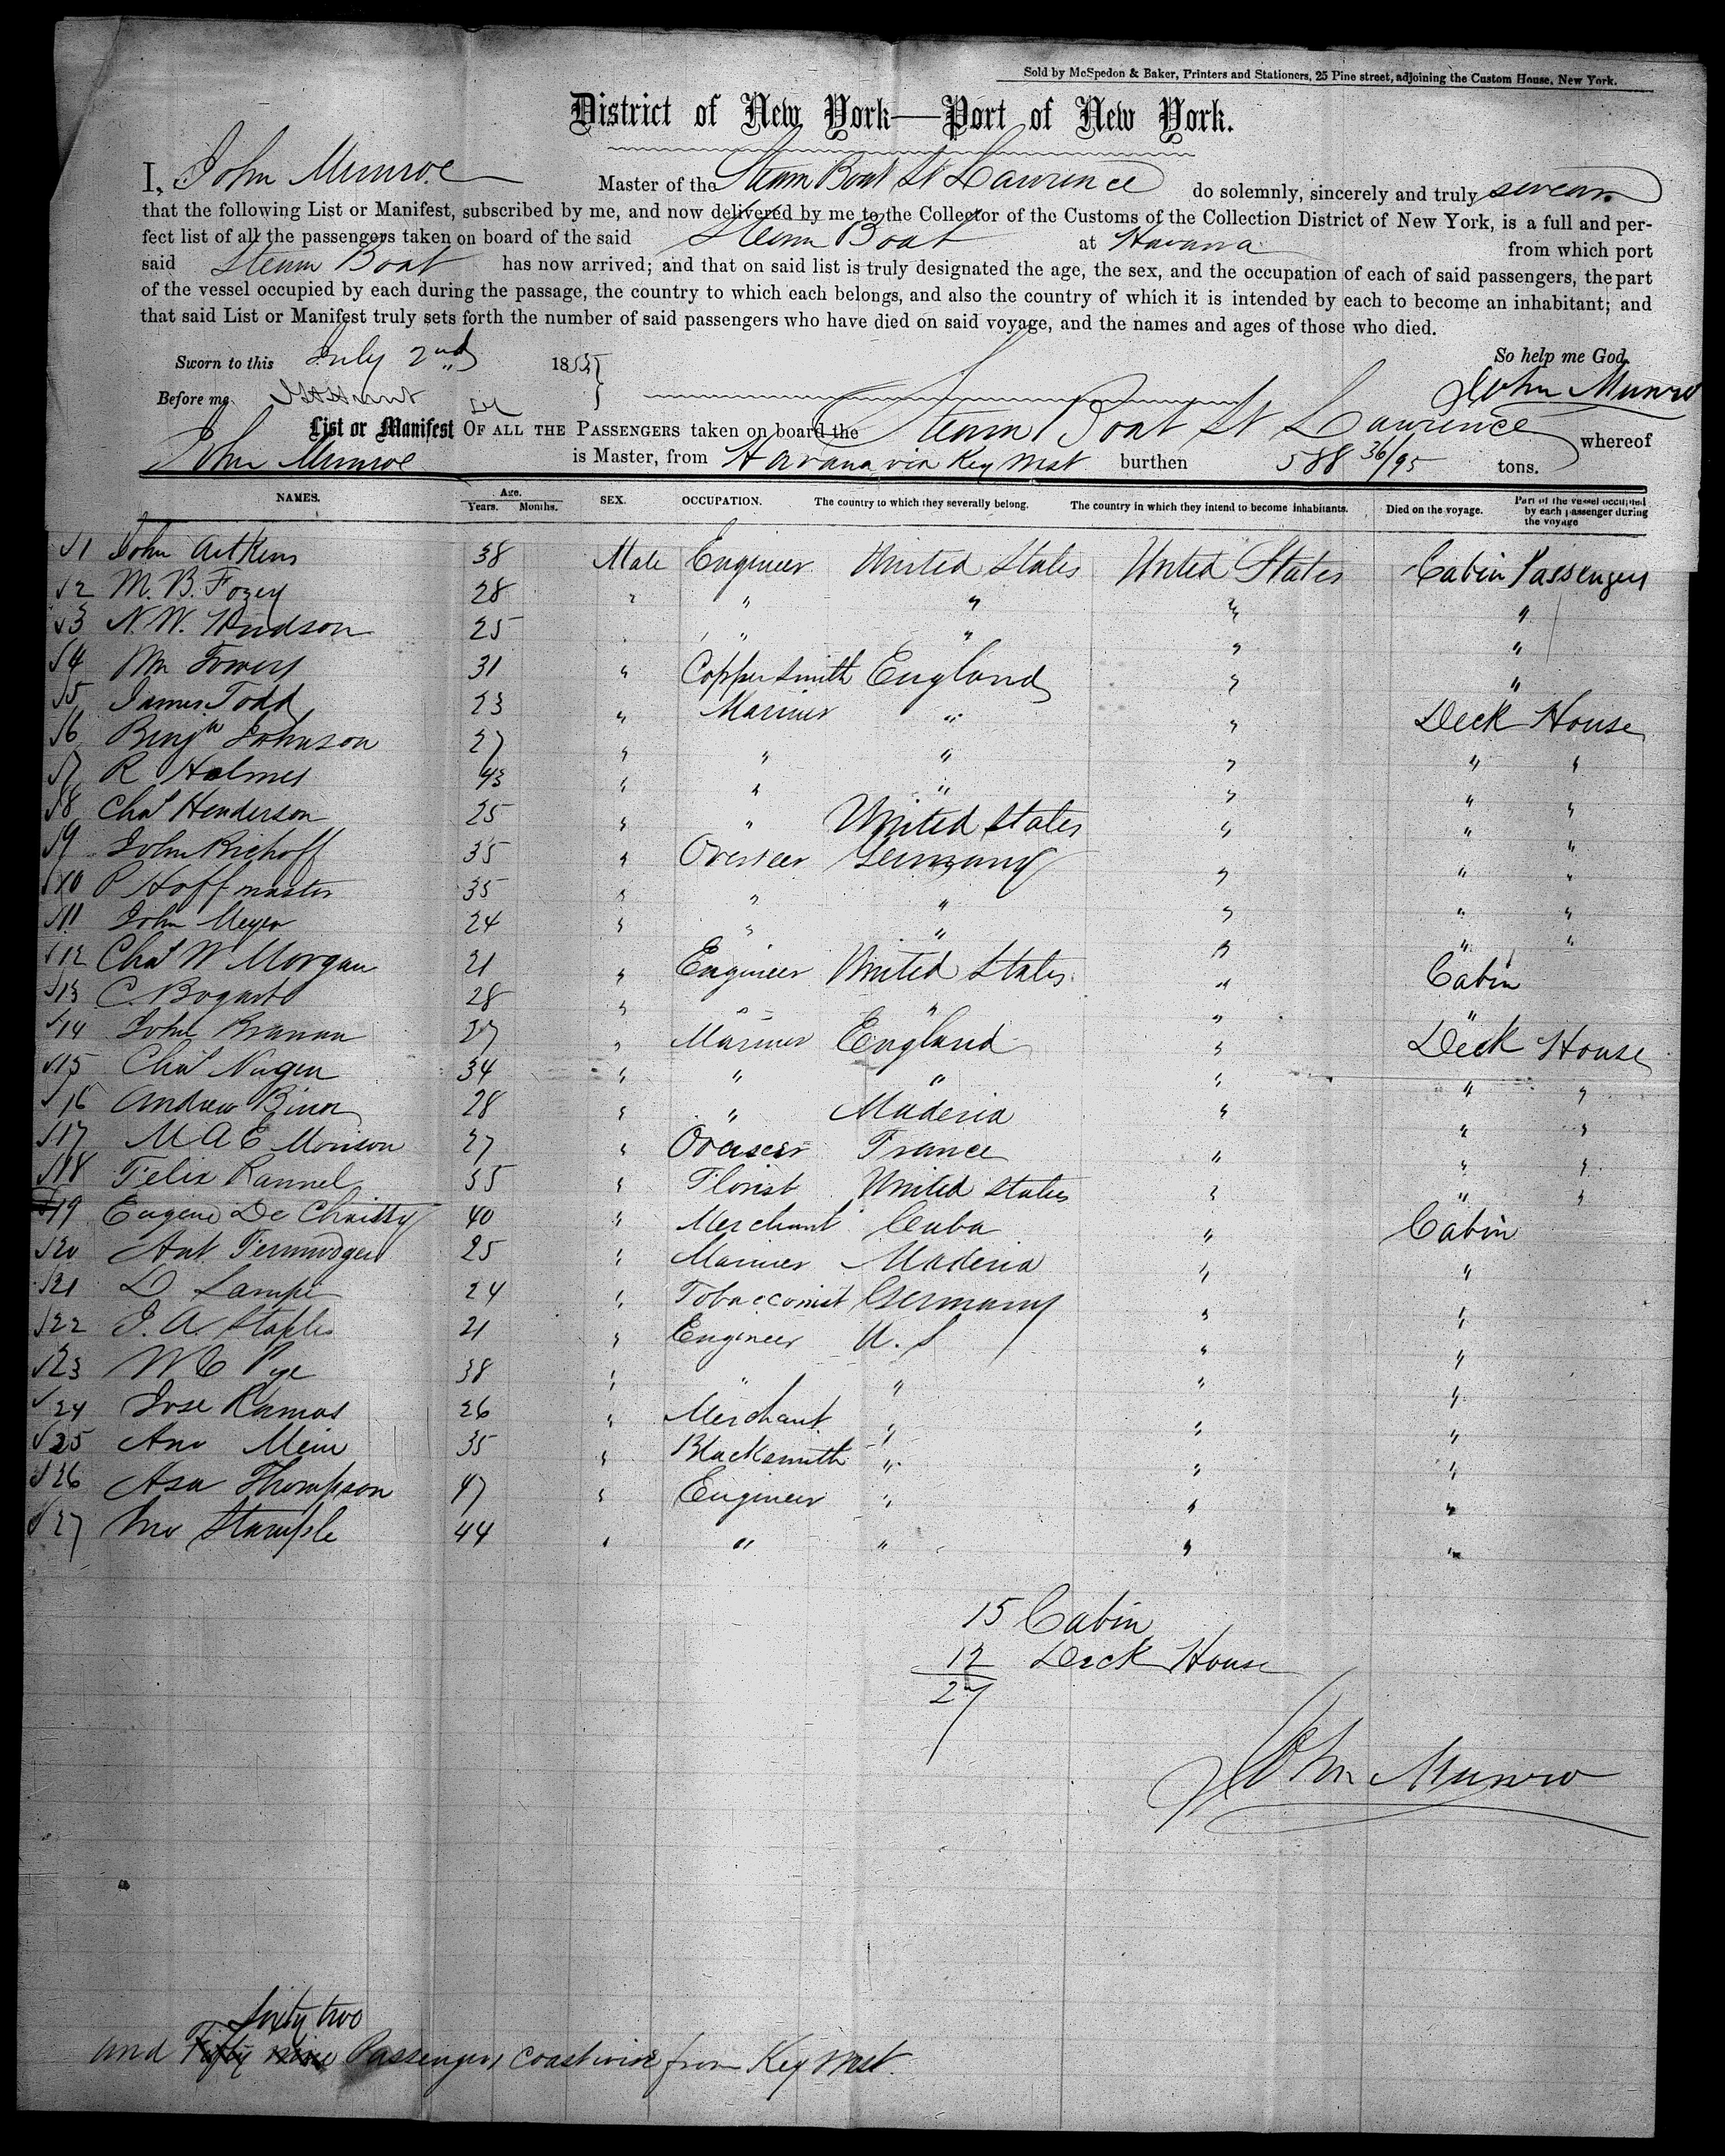 Sold by McSpedon & Baker, Printers and Stationers, 25 Pine street, adjoining the Custom House, New York.
District of New York—Port of New York.
I, John Munroe Master of the Steam Boat St Lawrence do solemnly, sincerely and truly swear
that the following List or Manifest, subscribed by me, and now delivered by me to the Collector of the Customs of the Collection District of New York, is a full and per-
fect list of all the passengers taken on board of the said Steam Boat at Havana from which port
said Steam Boat has now arrived; and that on said list is truly designated the age, the sex, and the occupation of each of said passengers, the part
of the vessel occupied by each during the passage, the country to which each belongs, and also the country of which it is intended by each to become an inhabitant; and
that said List or Manifest truly sets forth the number of said passengers who have died on said voyage, and the names and ages of those who died.
Sworn to this July 2nd 185 So help me God.
Before me John Munro
List or Manifest OF ALL THE PASSENGERS taken on board the Steam Boat St Lawrence whereof
John Munroe is Master, from Havana via Key West burthen 588 36/95 tons.
NAMES. Age. Years. Months. SEX. OCCUPATION. The country to which they severally belong. The country in which they intend to become inhabitants. Died on the voyage. Part of the vessel occupied by each passenger during the voyage
1 John Aitkens 38 Male Engineer United States United States Cabin Passengers
2 M. B. Fozey 28 " " " " "
3 N. W. Hudson 25 " " " "
4 Wm Towers 31 " Coppersmith England " "
5 James Todd 23 " Mariner " " Deck House
6 Benjn Johnson 27 " " " " " "
7 R Holmes 43 " " " " " "
8 Chas Henderson 25 " " United States " " "
9 John Bichoff 35 " Overseer Germany " " "
10 P Hoffmaster 35 " " " " " "
11 John Meyer 24 " " " " " "
12 Chas W Morgan 21 " Engineer United States " Cabin
13 C. Bogart 28 " " " " "
14 John Branan 27 " Mariner England " Deck House
15 Chas Nugen 34 " " " " " "
16 Andrew 28 " " Maderia " " "
17 M A E Morison 27 " Overseer France " " "
18 Felix Rannel 35 " Florist United States " " "
19 Eugene De Chaitty 40 " Merchant Cuba " Cabin
20 Ant 25 " Mariner Maderia " "
21 D Lampe 24 " Tobacconist Germany " "
22 J. A. Staples 21 " Engineer U. S " "
23 W C Pye 38 " " " " "
24 Jose Ramos 26 " Merchant " " "
25 Ano Meir 35 " Blacksmith " " "
26 Asa Thompson 47 " Engineer " " "
27 Jno Stample 44 " " " " "
15 Cabin
12 Deck House
27
John Munro
Sixty two
and Fifty nine Passengers coastwise from Key West.